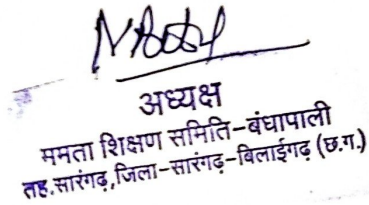 अध्यक्ष
ममता शिक्षण समिति-बंधापाली
तह.सारंगढ़,जिला-सारंगढ़-बिलाईगढ़ (छ.ग.)